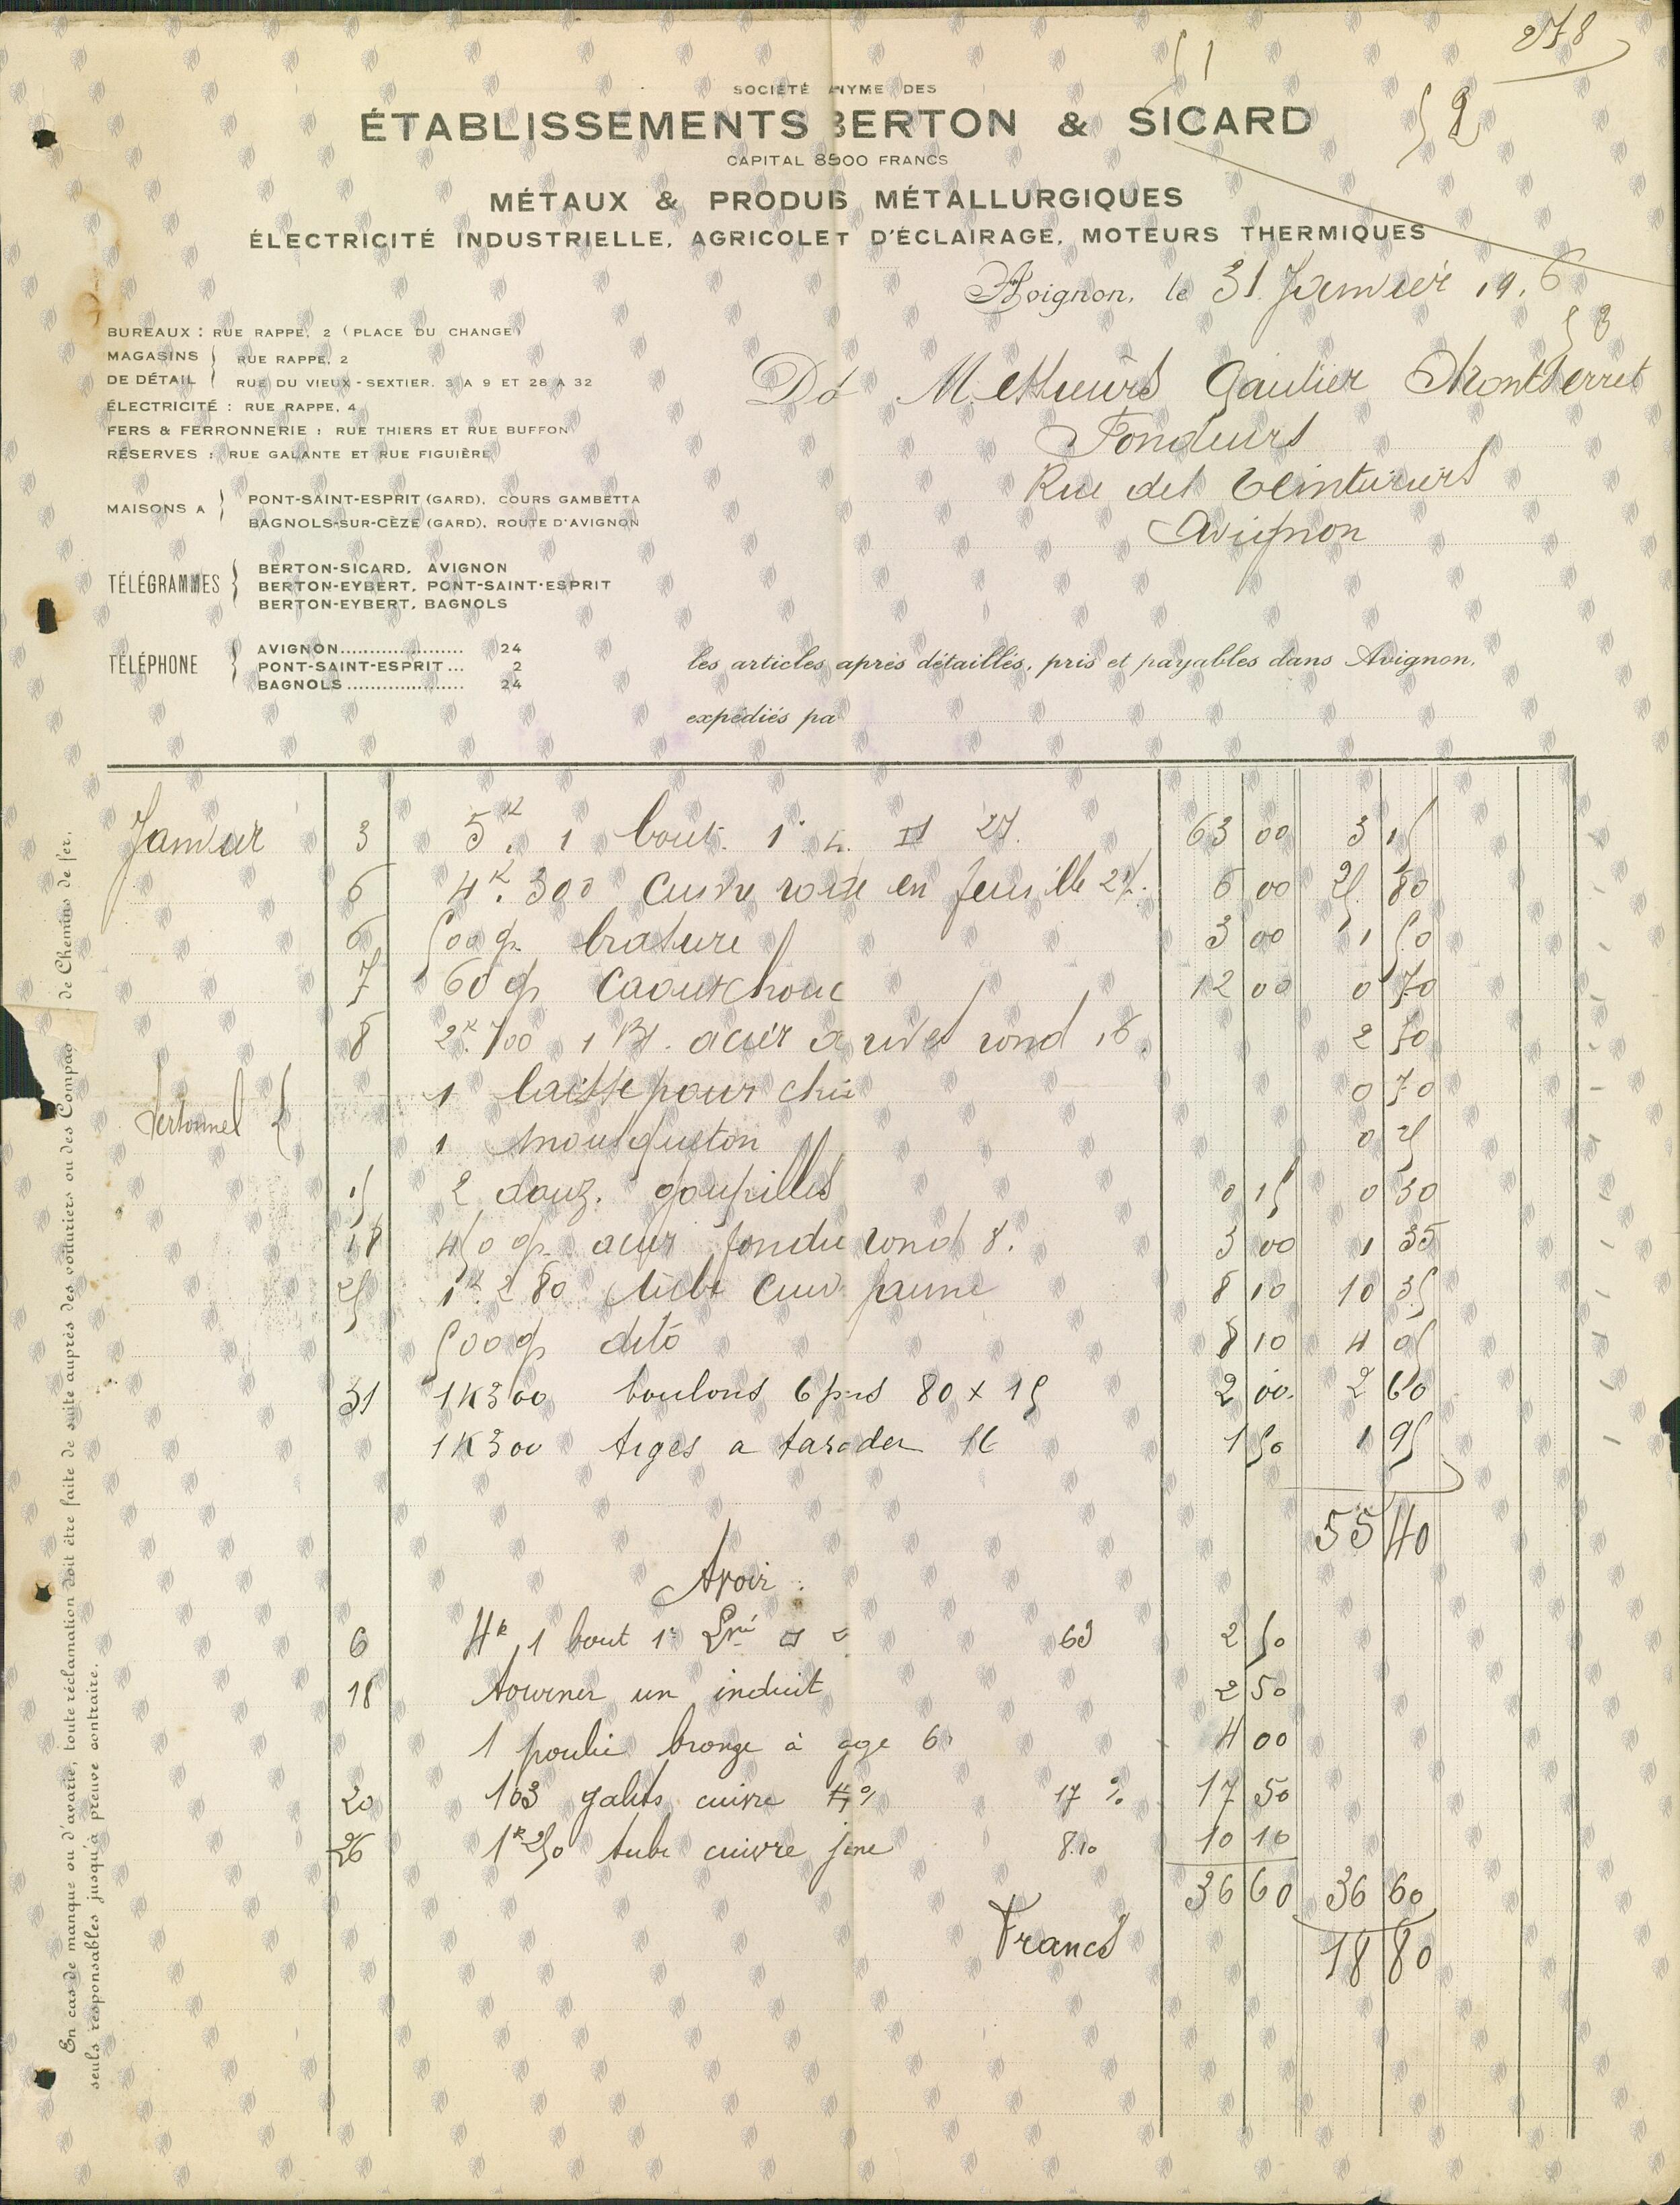 278
SOCIÉTÉ NYME DES
ÉTABLISSEMENTS BERTON & SICARD
2
CAPITAL 8500 FRANCS
MÉTAUX & PRODUIS MÉTALLURGIQUES
ÉLECTRICITÉ INDUSTRIELLE, AGRICOLET D'ÉCLAIRAGE, MOTEURS THERMIQUES
Avignon, le 31 Janvier 19 6
3
BUREAUX : RUE RAPPE, 2 (PLACE DU CHANGE)
MAGASINS DE DÉTAIL { RUE RAPPE, 2
RUE DU VIEUX-SEXTIER, 3 A 9 ET 28 A 32
ÉLECTRICITÉ : RUE RAPPE, 4
FERS & FERRONNERIE : RUE THIERS ET RUE BUFFON
RÉSERVES : RUE GALANTE ET RUE FIGUIÈRE
MAISONS A } PONT-SAINT-ESPRIT (GARD), COURS GAMBETTA
BAGNOLS-SUR-CÈZE (GARD), ROUTE D'AVIGNON
TÉLÉGRAMMES { BERTON-SICARD, AVIGNON
BERTON-EYBERT, PONT-SAINT-ESPRIT
BERTON-EYBERT, BAGNOLS
TÉLÉPHONE { AVIGNON..................... 24
PONT-SAINT-ESPRIT... 2
BAGNOLS.................... 24
Dt Messieurs Gautier Montserret
Fondeurs
Rue des Teinturiers
Avignon
les articles après détaillés, pris et payables dans Avignon,
expédiés pa
Janvier 3 5K. 1 bout. 27. 63 00 3 15
6 4K.300 Cuivre rouge en feuille 6 00 25 80
6 500 g. brasure 3 00 1 50
7 60 g. Caoutchouc 12 00 0 70
8 2K.700 1 Bt. acier a rivet rond 16. 2 70
Personnel { 1 laisse pour chie 0 70
1 mousqueton 0 25
15 2 douz. goupilles 0 15 0 30
18 450 g. acier fondu rond 8. 3 00 1 35
25 1K.280 tube cuiv jaune 8 10 10 35
500 g. dito 8 10 4 05
31 1K300 boulons 6 pns 80 x 15 2 00 2 60
1K300 tiges a tarauder 16 1 50 1 95
55 40
Avoir :
6 4k 1 bout 63 2 50
18 tourner un induit 2 50
1 poulie bronze à gge 6 4 00
20 103 galets cuivre 17 % 17 50
26 1k250 tube cuivre jne 8.10 10 10
36 60 36 60
Francs 18 80
En cas de manque ou d'avarie, toute réclamation doit être faite de suite auprès des voituriers ou des Compag de Chemins de fer,
seuls responsables jusqu'à preuve contraire.